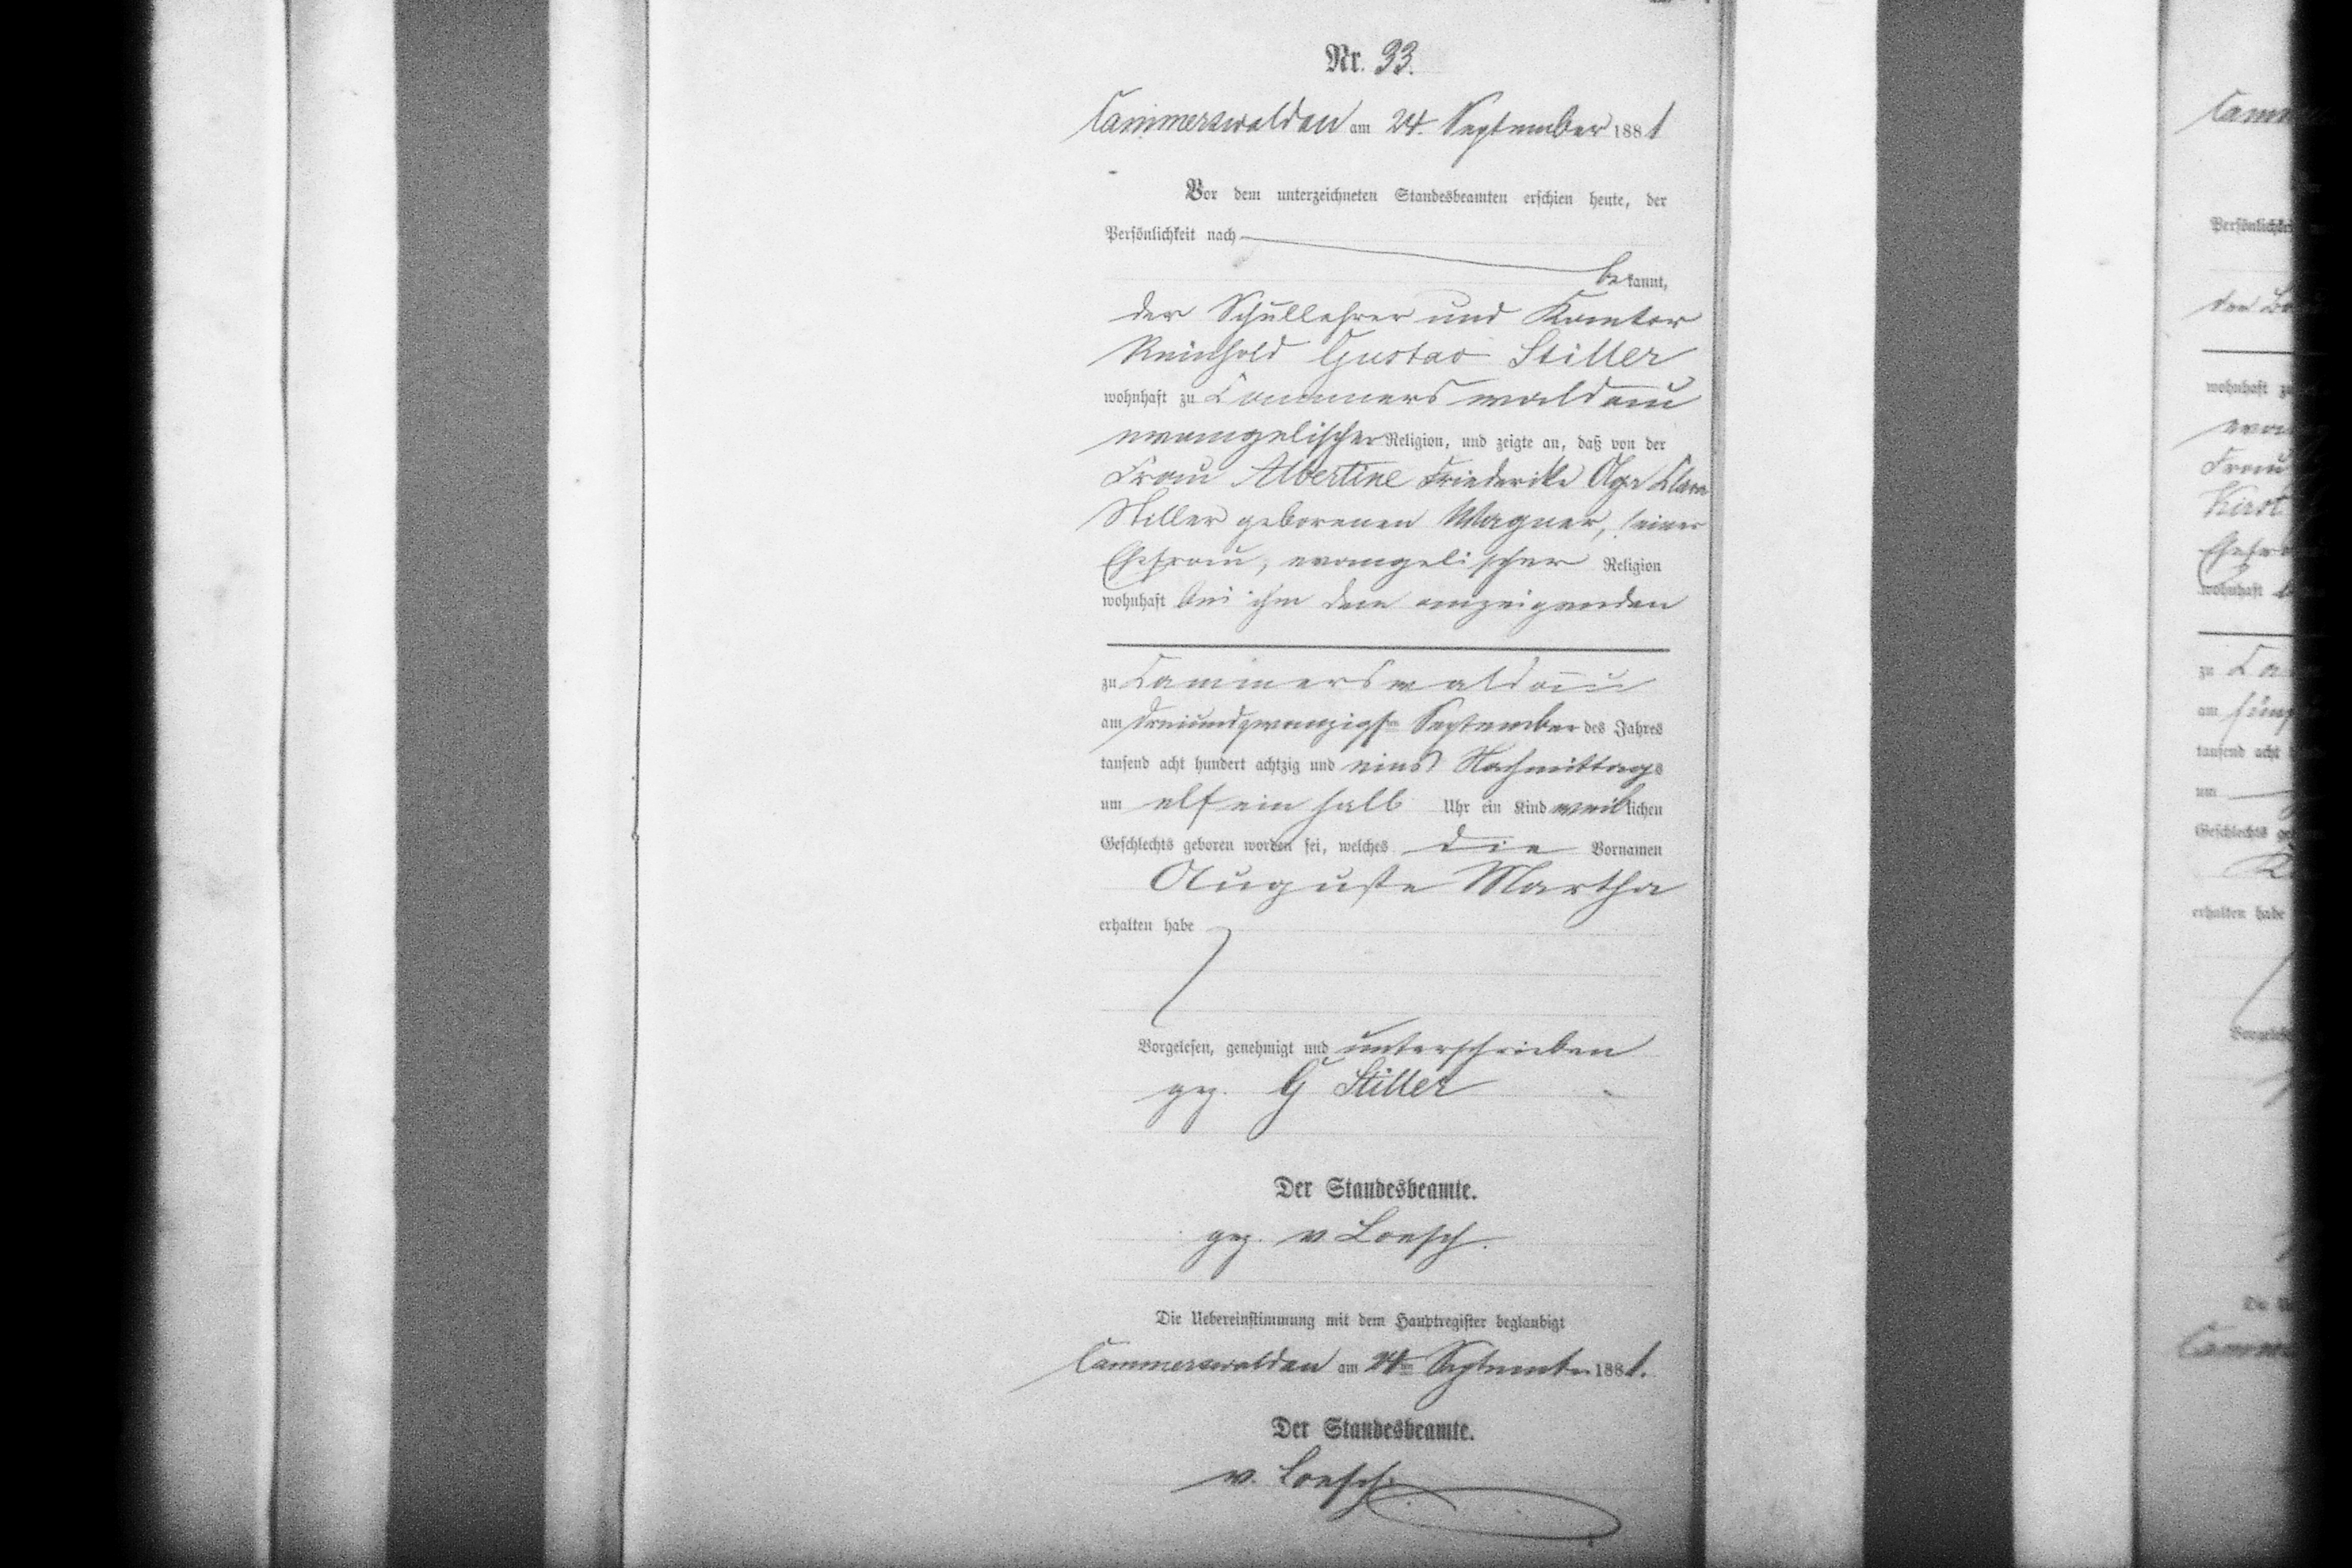 Nr. 33.
Cammerswaldau am 24. September 1881
Vor dem unterzeichneten Standesbeamten erschien heute, der
Persönlichkeit nach
bekannt,
der Schullehrer und Kantor
Reinhold Gustav Stiller
wohnhaft zu Cammerswaldau
evangelischer Religion, und zeigte an, daß von der
Frau Albertine Friederike Olga Clara
Stiller geborenen Wagner, seiner
Ehefrau, evangelischer Religion
wohnhaft bei ihm dem anzeigenden
zu Cammerswaldau
am dreiundzwanzigsten September des Jahres
tausend acht hundert achtzig und eins Nachmittags
um elf ein halb Uhr ein Kind weiblichen
Geschlechts geboren worden sei, welches die Vornamen
Auguste Martha
erhalten habe
Vorgelesen, genehmigt und unterschrieben
gez. G Stiller
Der Standesbeamte.
gez. v Loesch.
Die Uebereinstimmung mit dem Hauptregister beglaubigt
Cammerswaldau am 24ten September 1881.
Der Standesbeamte.
v. Loesch.
Persönlichkei
wohnhaft zu
Frau
Kirst
wohnhaft
zu Ca
am fünf
tausend acht
um
Geschlechts
erhalten habe